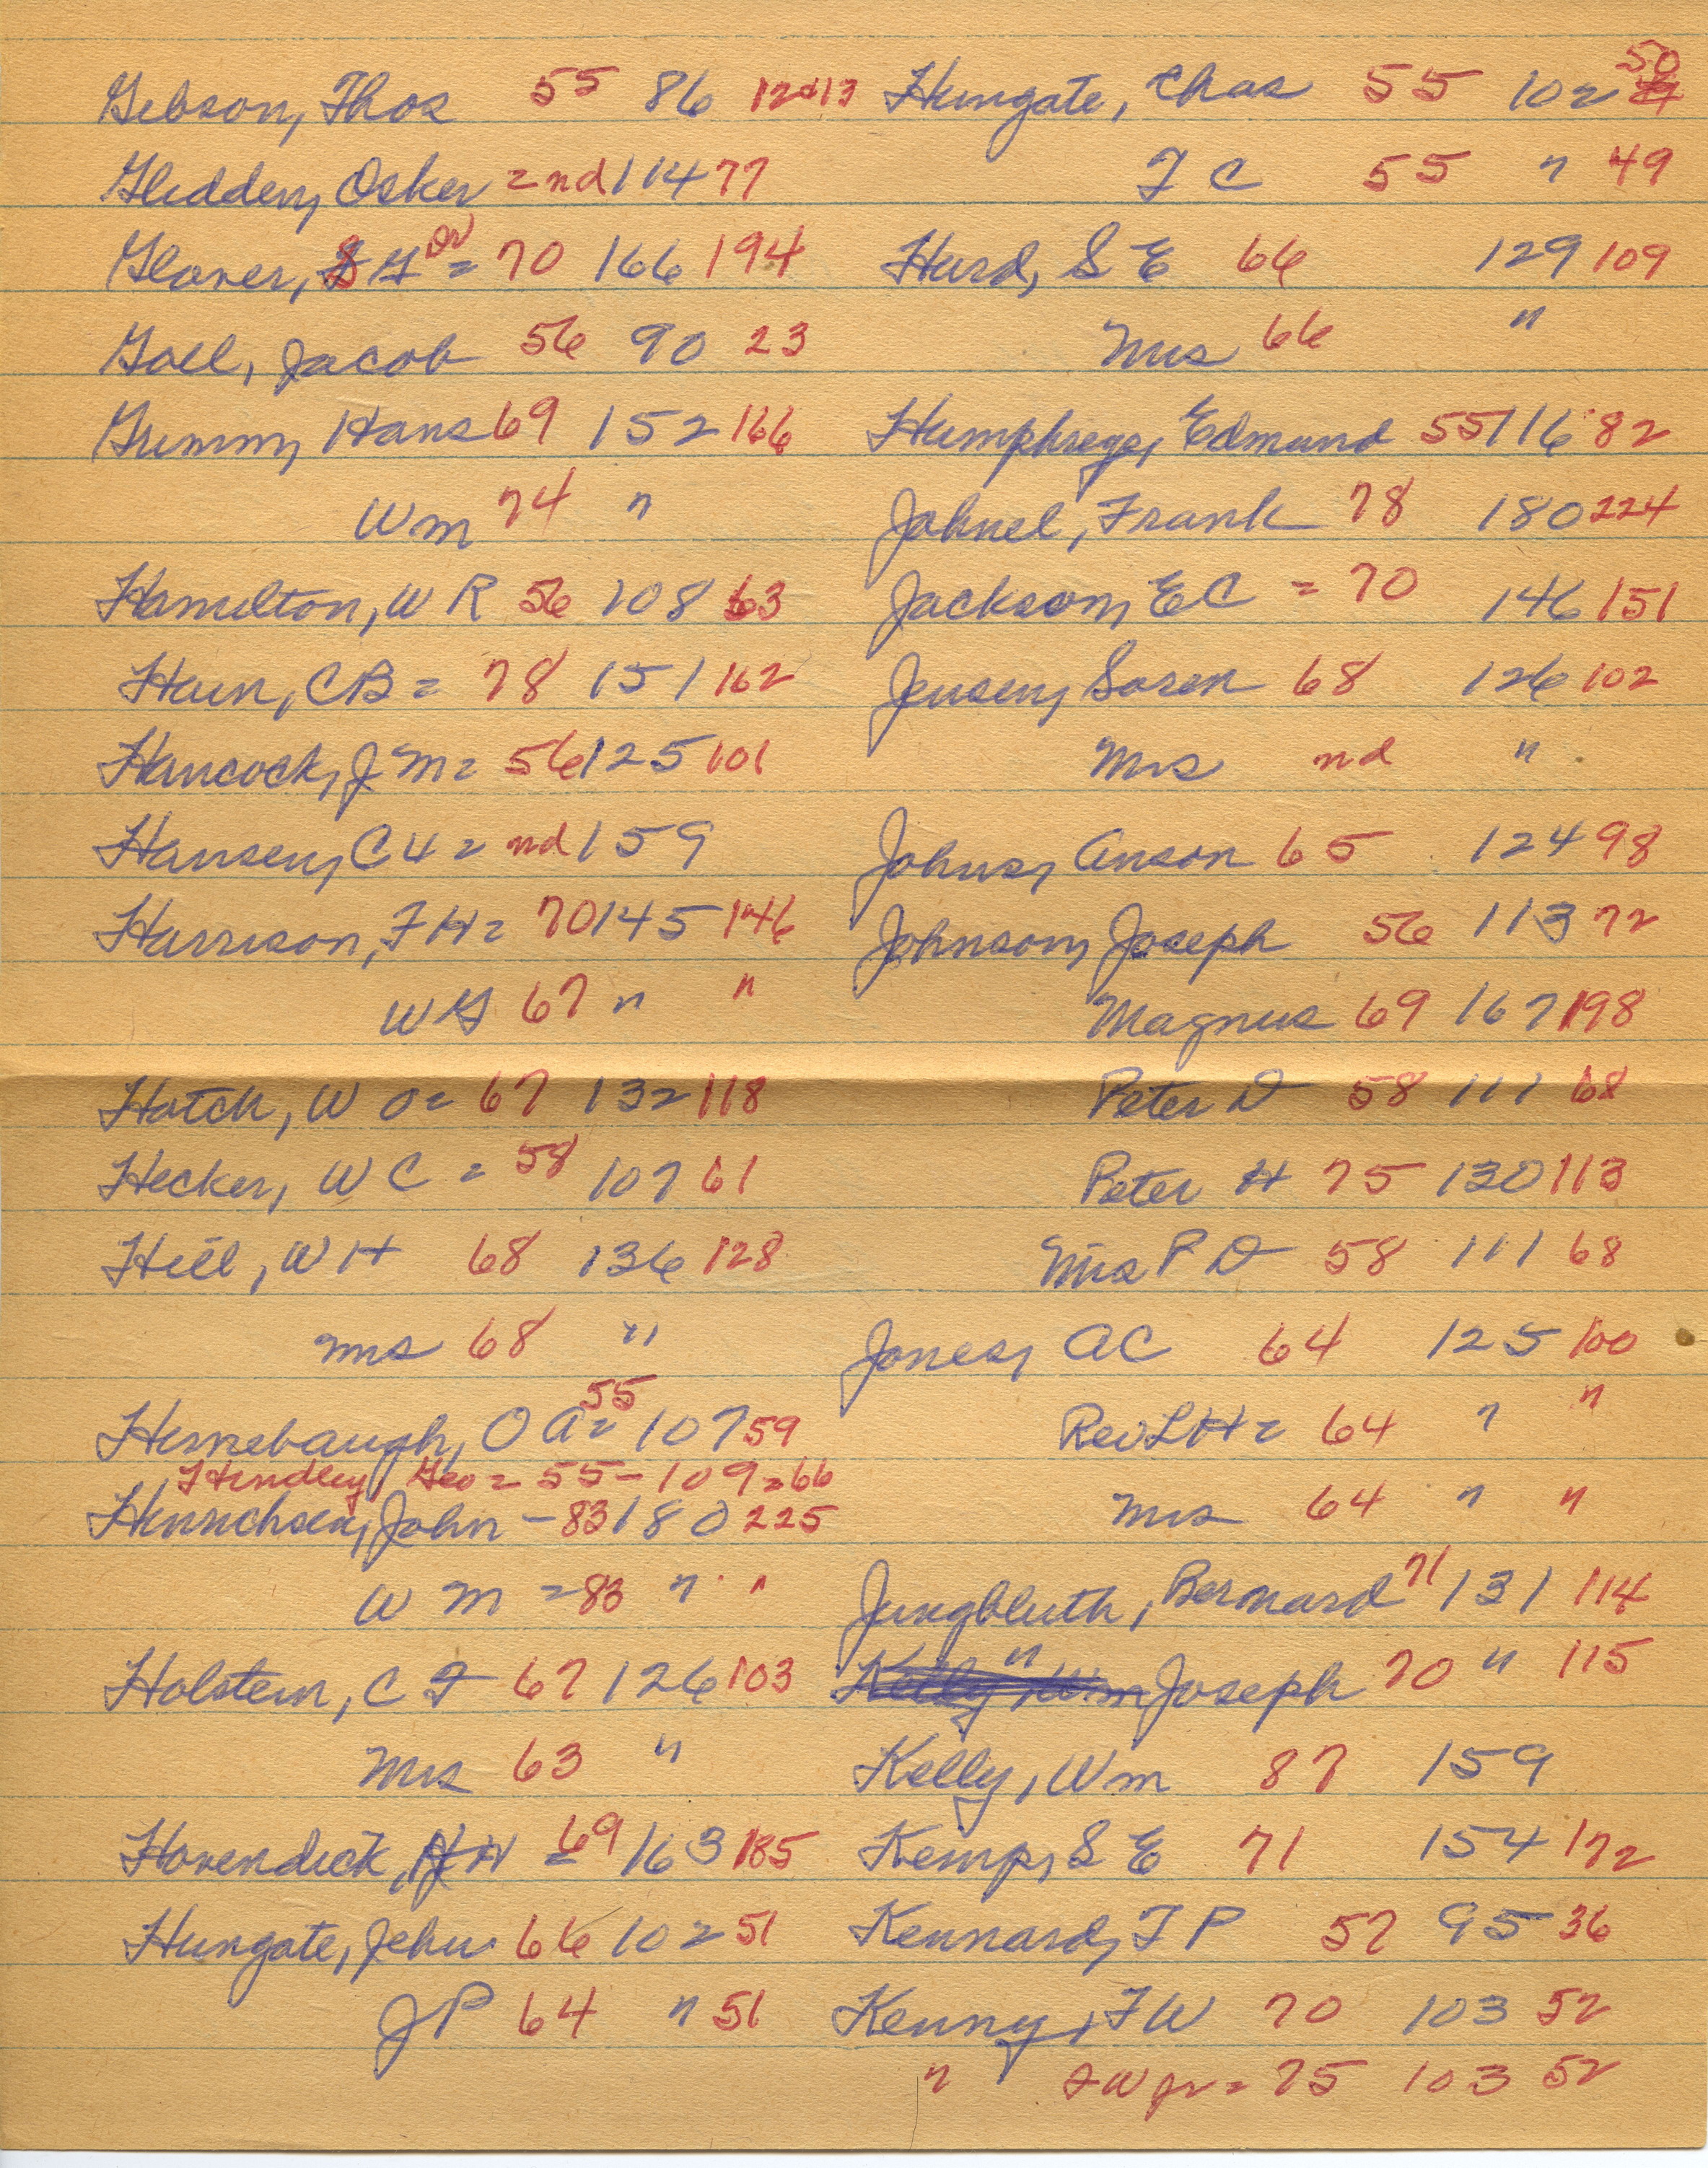 Gibson, Thos 55 86 12&13
Glidden, Osker = nd 114 77
Glover, S G Dr = 70 166 194
Goll, Jacob 56 90 23
Grimm, Hans 69 152 166
Wm 74 "
Hamilton, W R 56 108 63
Hain, CB = 78 151 162
Hancock, J M = 56 125 101
Hansen, C H = nd 159
Harrison, F H = 70 145 146
W G 67 " "
Hatch, W O = 67 132 118
Hecker, W C = 58 107 61
Hill, W H 68 136 128
Mrs 68 "
Himebaugh, O A = 55 107 59
Hindley, Geo = 55 - 109 = 66
Hinrichsen, John - 83 180 225
W M = 83 " "
Holstein, C F 67 126 103
Mrs 63 "
Hovendick, H = 69 163 185
Hungate, Jehu 66 102 51
J P 64 " 51
Hungate, Chas 55 102 50
T C 55 " 49
Hurd, S E 66 129 109
Mrs 66 "
Humphreys, Edmund 55 116 82
Jahnel, Frank 78 180 224
Jackson, E C = 70 146 151
Jensen, Soren 68 126 102
Mrs nd "
Johns, Anson 65 124 98
Johnson, Joseph 56 113 72
Magnus 69 167 198
Peter D 58 111 68
Peter H 75 130 113
Mrs P D 58 111 68
Jones, A C 64 125 100
Rev L H = 64 " "
Mrs 64 " "
Jungbluth, Bernard 71 131 114
Kelly, Wm " Joseph 70 " 115
Kelly, Wm 87 159
Kemp, S E 71 154 172
Kennard, T P 57 95 36
Kenny, F W 70 103 52
" F W Jr = 75 103 52